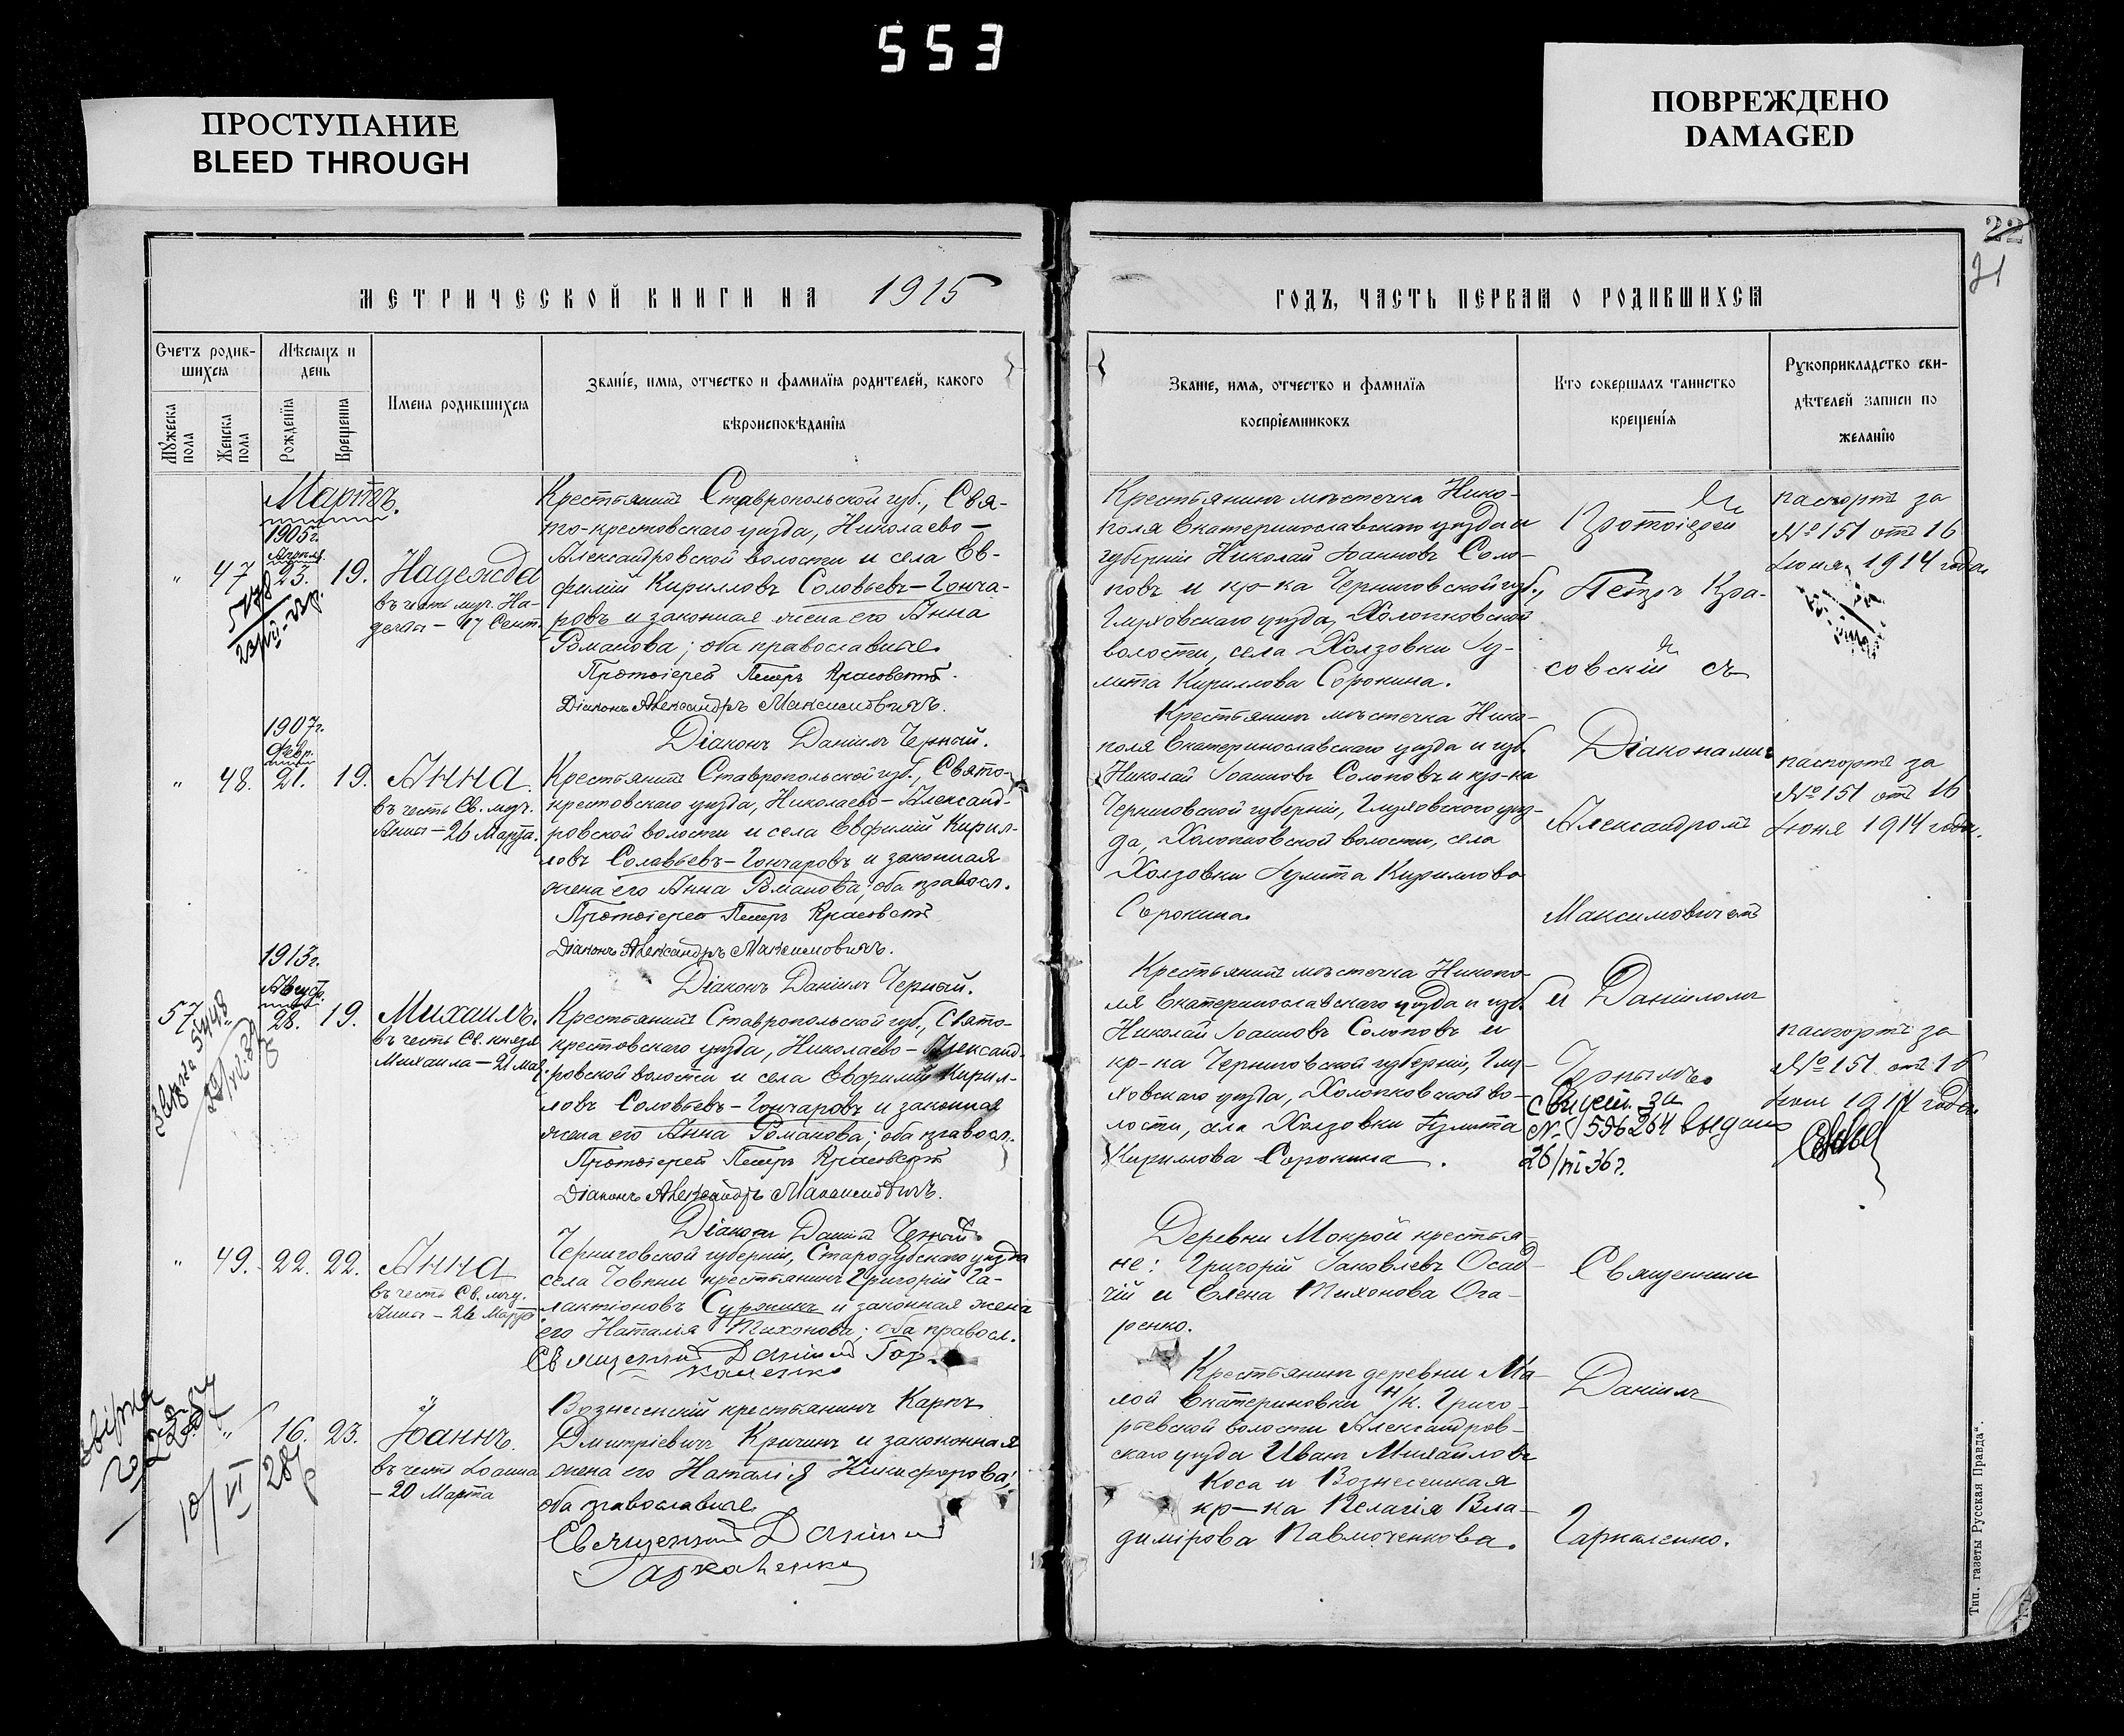 553
ПРОСТУПАНИЕ
BLEED THROUGH
ПОВРЕЖДЕНО
DAMAGED
22
21
МЕТРИЧЕСКОЙ КНИГИ НА 1915
Счетъ родив-
шихся
Мѣсяцъ и
день
Мужеска пола
Женска пола
Рожденія
Крещенія
Имена родившихся
Званіе, имя, отчество и фамилія родителей, какого
вѣроисповѣданія
Мартъ.
1905г.
Апрѣля
" 47 23. 19. Надежда
въ честь муч. На-
дежды – 17 Сент.
Крестьянинъ Ставропольской губ., Свя-
то-крестовскаго уѣзда, Николаево-
Александровской волости и села Ев-
фимій Кирилловъ Соловьевъ-Гонча-
ровъ и законная жена его Анна
Романова; оба православные.
Протоіерей Петръ Красовскій.
Діаконъ Александръ Максимовичъ.
Діаконъ Даніилъ Черный.
1907г.
Февр.
" 48. 21. 19. Анна
въ честь Св. муч.
Анны – 26 Марта.
Крестьянинъ Ставропольской губ., Свято-
крестовскаго уѣзда, Николаево-Александ-
ровской волости и села Евфимій Кирил-
ловъ Соловьевъ-Гончаровъ и законная
жена его Анна Романова; оба правосл.
Протоіерей Петръ Красовскій
Діаконъ Александръ Максимовичъ.
Діаконъ Даніилъ Черный.
1913г.
Августъ.
57 " 28. 19. Михаилъ.
въ честь Св. князя
Михаила – 21 мая
Крестьянинъ Ставропольской губ., Свято-
крестовскаго уѣзда, Николаево-Александ-
ровской волости и села Евфимій Кирил-
ловъ Соловьевъ-Гончаровъ и законная
жена его Анна Романова; оба правосл.
Протоіерей Петръ Красовскій
Діаконъ Александръ Максимовичъ.
Діаконъ Даніилъ Черный.
" 49. 22. 22. Анна
въ честь Св. муч.
Анны – 26 Марта
Черниговской губерніи, Стародубскаго уѣзда
села крестьянинъ Григорій Га-
лактіоновъ Суражикъ и законная жена
его Наталія Тихонова; оба правосл.
Священникъ Даніилъ Гар-
каленко
" 16. 23. Іоаннъ.
въ честь Іоанна
– 20 Марта
Вознесенскій крестьянинъ Карпъ
Дмитріевичъ Кричинъ и законная
жена его Наталія Никифорова;
оба православные.
Священникъ Даніилъ
Гаркаленко
ГОДЪ, ЧАСТЬ ПЕРВАЯ О РОДИВШИХСЯ
Званіе, имя, отчество и фамилія
воспріемниковъ
Кто совершалъ таинство
крещенія
Рукоприкладство сви-
дѣтелей записи по
желанію
Крестьянинъ мѣстечка Нико-
поля Екатеринославскаго уѣзда и
губерніи Николай Іоанновъ Соло-
повъ и кр-ка Черниговской губ.,
Глуховскаго уѣзда, Холопковской
волости, села Холзовки Іу-
литта Кириллова Сорокина.
Крестьянинъ мѣстечка Нико-
поля Екатеринославскаго уѣзда и губ.
Николай Іоанновъ Солоповъ и кр-ка
Черниговской губерніи, Глуховского уѣз-
да, Холопковской волости, села
Холзовки Іулитта Кириллова
Сорокина.
Крестьянинъ мѣстечка Никопо-
ля Екатеринославскаго уѣзда и губ.
Николай Іоанновъ Солоповъ и
кр-ка Черниговской губерніи, Глу-
ховскаго уѣзда, Холопковской во-
лости, села Холзовки Іулитта
Кириллова Сорокина.
Деревни Мокрой крестья-
не: Григорій Іаковлевъ Осад-
чій и Елена Тихонова Ога-
ренко.
Крестьянинъ деревни Ма-
лой Екатериновки Н/к. Григо-
рьевской волости Александров-
скаго уѣзда Иванъ Михайловъ
Коса и Вознесенская
кр-ка Пелагія Вла-
димірова Павлюченкова.
Протоіерей
Петръ Кра-
совскій съ
Діаконами
Александромъ
Максимовичемъ
и Даніиломъ
Чернымъ.
Свидет. за
№ 596264 выдано
26/III 36г.
Священникъ
Даніилъ
Гаркаленко.
паспортъ за
№ 151 отъ 16
Іюня 1914 года
паспортъ за
№ 151 отъ 16
Іюня 1914 года.
паспортъ за
№ 151 отъ 16
Іюня 1914 года
Тип. газеты „Русская Правда“.